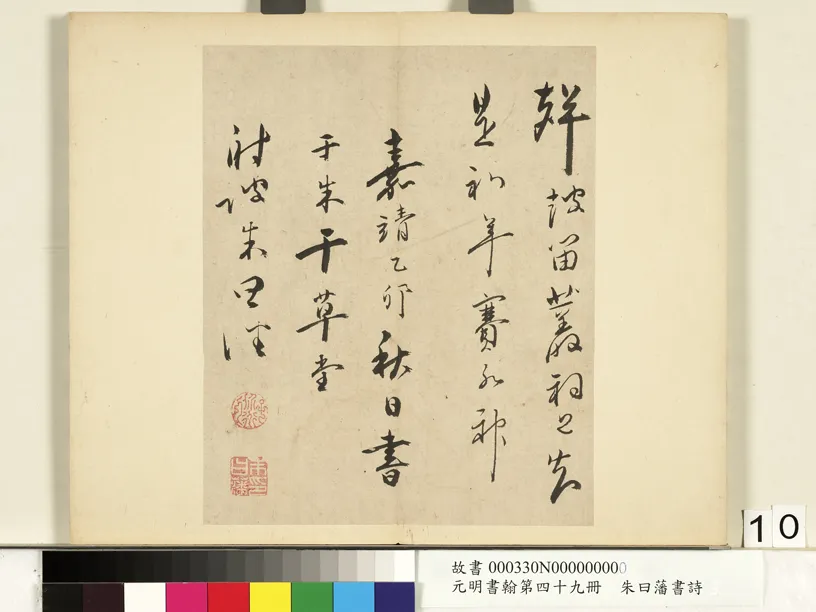 留叢祠
是初年賽水神
嘉靖乙卯秋日書
于朱干草堂
射陂朱曰藩
10
故書 000330N000000000
元明書翰第四十九冊 朱曰藩書詩